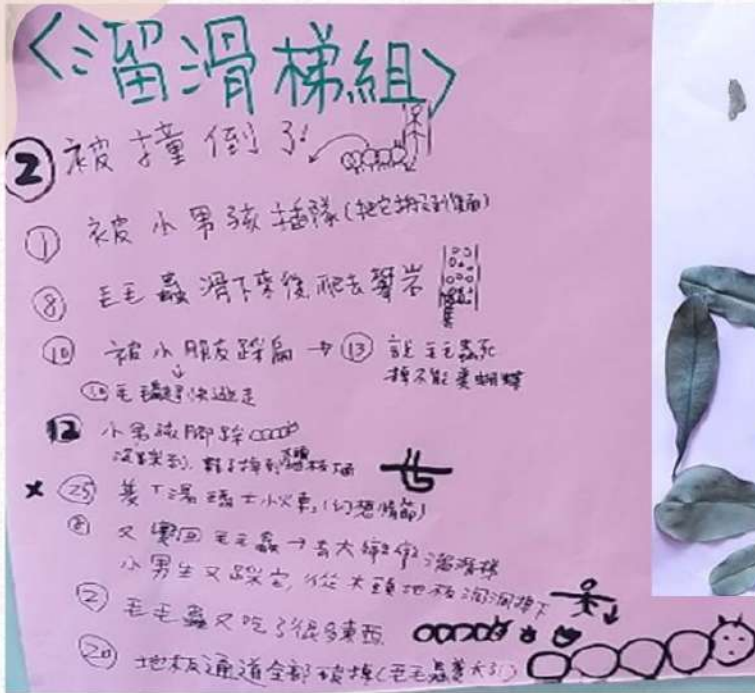 <溜滑梯組>
② 被撞倒了!
① 被小男孩插隊(把它擠到後面)
⑧ 毛毛蟲滑下來後爬去攀岩
⑩ 被小朋友踩扁 → ⑬ 說毛毛蟲死
掉不能變蝴蝶
毛毛蟲趕快逃走
12 小男孩腳踩
沒踩到,鞋子掉到地板
x ㉕ 變(幻想情節)
⑧ 又變回毛毛蟲→去大溜滑梯
小男生又踩它,從木頭地板洞洞掉下
② 毛毛蟲又吃了很多東西
⑳ 地板通道全部破掉(毛毛蟲變大了!)